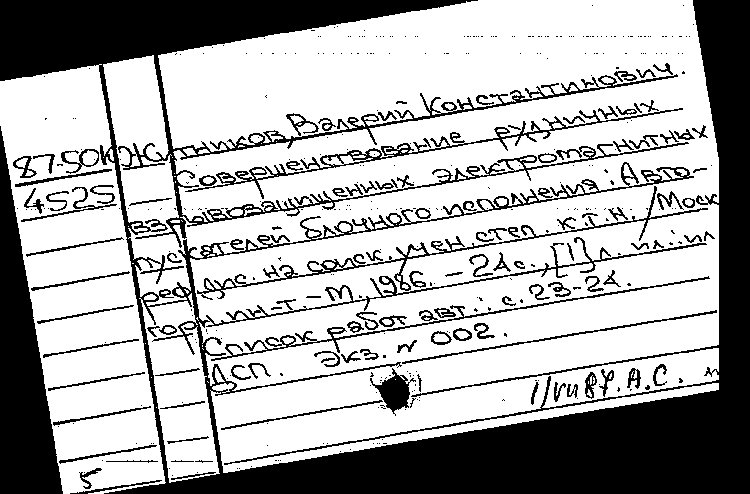 Житников, Валерий Константинович.
87.50К Совершенствование рудничных
4525 взрывозащищенных электромагнитных
пускателей блочного исполнения: Авто-
реф. дис. на соиск. учен. степ. к.т.н. / Моск
горн. ин-т. - М., 1986. - 24с., [1] л. ил.: ил
Список работ авт.: с. 23-24.
ДСП. Экз. № 002.
А.С.
5